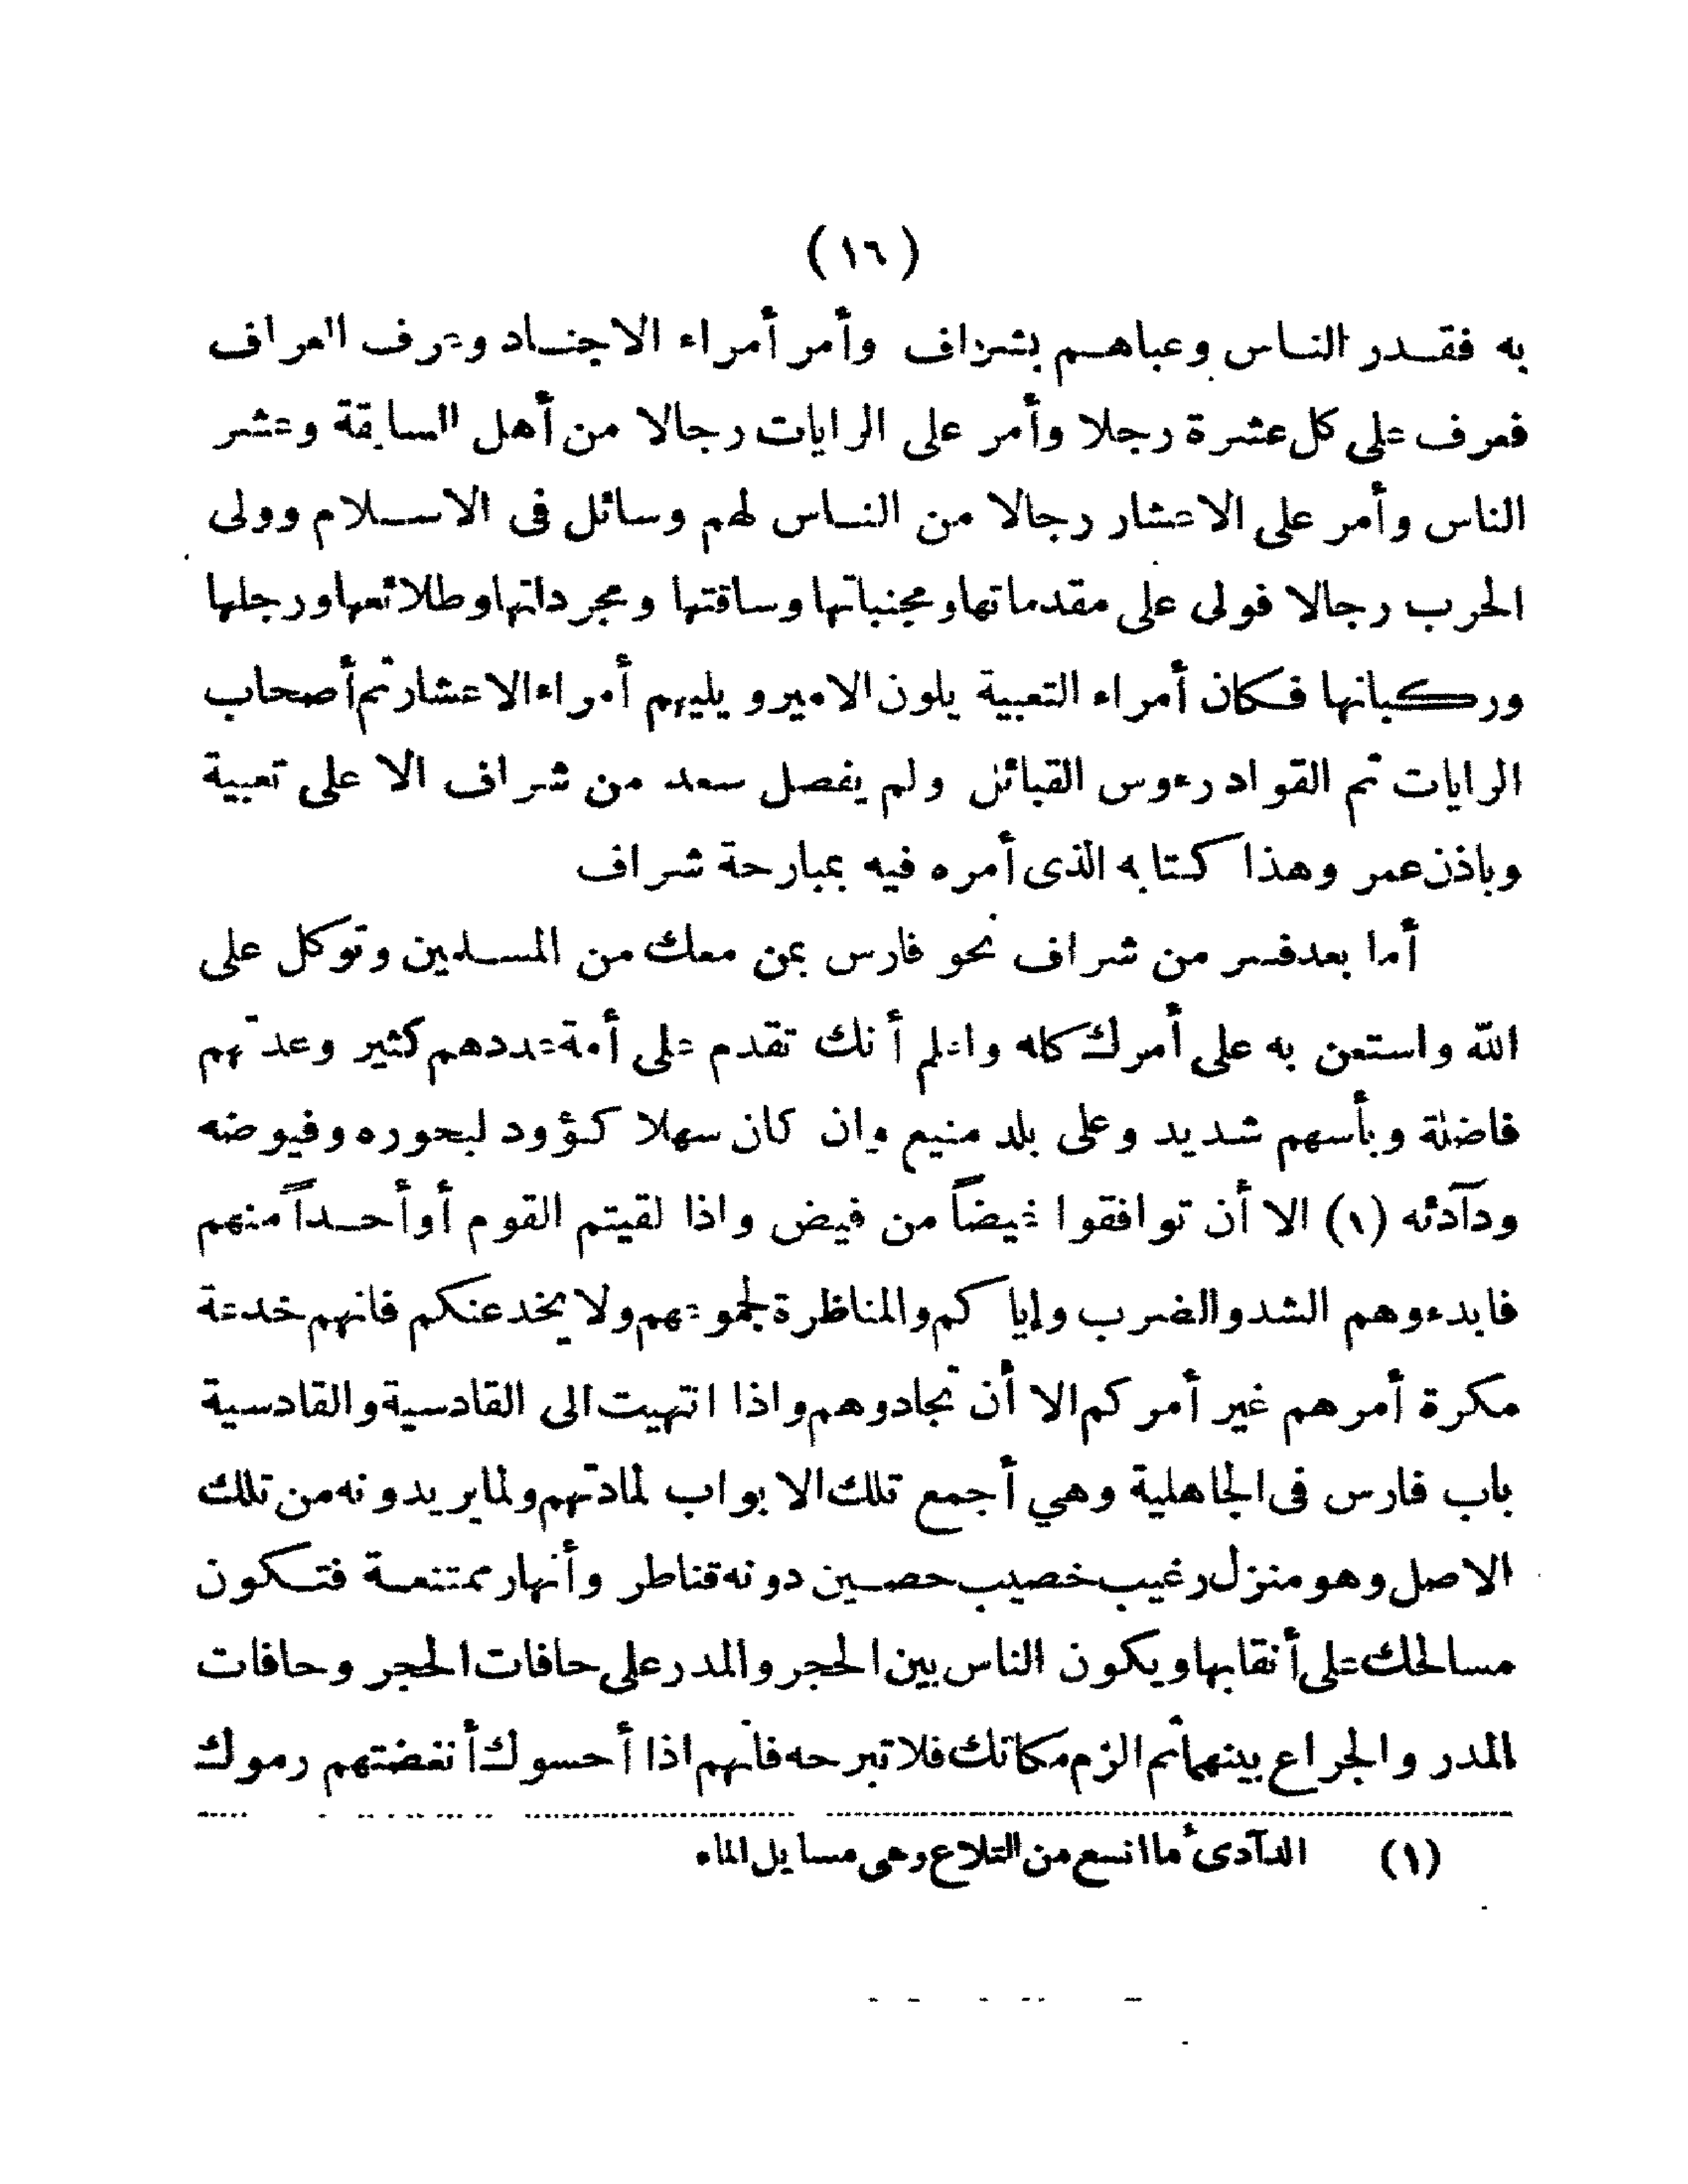 (١٦)
به فقدر الناس وعباهم بشراف وأمر أمراء الاجناد وعرف العراف
فعرف على كل عشرة رجلا وأمر على الرايات رجالا من أهل السابقة وعشر
الناس وأمر على الاعشار رجالا من الناس لهم وسائل فى الاسلام وولى
الحرب رجالا فولى على مقدماتها ومجنباتها وساقتها ومجرداتها وطلائعها ورجلها
وركبانها فكان أمراء التعبية يلون الامير ويليهم أمراء الاعشار ثم أصحاب
الرايات ثم القواد رءوس القبائل ولم يفصل سعد من شراف الا على تعبية
وباذن عمر وهذا كتابه الذى أمره فيه بمبارحة شراف
أما بعد فسر من شراف نحو فارس بمن معك من المسلمين وتوكل على
الله واستعن به على أمرك كله واعلم أنك تقدم على أمة عددهم كثير وعدتهم
فاضلة وبأسهم شديد وعلى بلد منيع وان كان سهلا كؤود لبحوره وفيوضه
ودآدئه (١) الا أن توافقوا غيضاً من فيض واذا لقيتم القوم أو أحداً منهم
فابدءوهم الشد والضرب وإياكم والمناظرة لجموعهم ولا يخدعنكم فانهم خدعة
مكرة أمرهم غير أمركم الا أن تجادوهم واذا انتهيت الى القادسية والقادسية
باب فارس فى الجاهلية وهي أجمع تلك الابواب لمادتهم ولما يريدونه من تلك
الاصل وهو منزل رغيب خصيب حصين دونه قناطر وأنهار ممتنعة فتكون
مسالحك على أنقابها ويكون الناس بين الحجر والمدر على حافات الحجر وحافات
المدر والجراع بينهما ثم الزم مكانك فلا تبرحه فانهم اذا أحسوك أنغضتهم رموك
(١) الدآدئ ما اتسع من التلاع وهى مسايل الماء